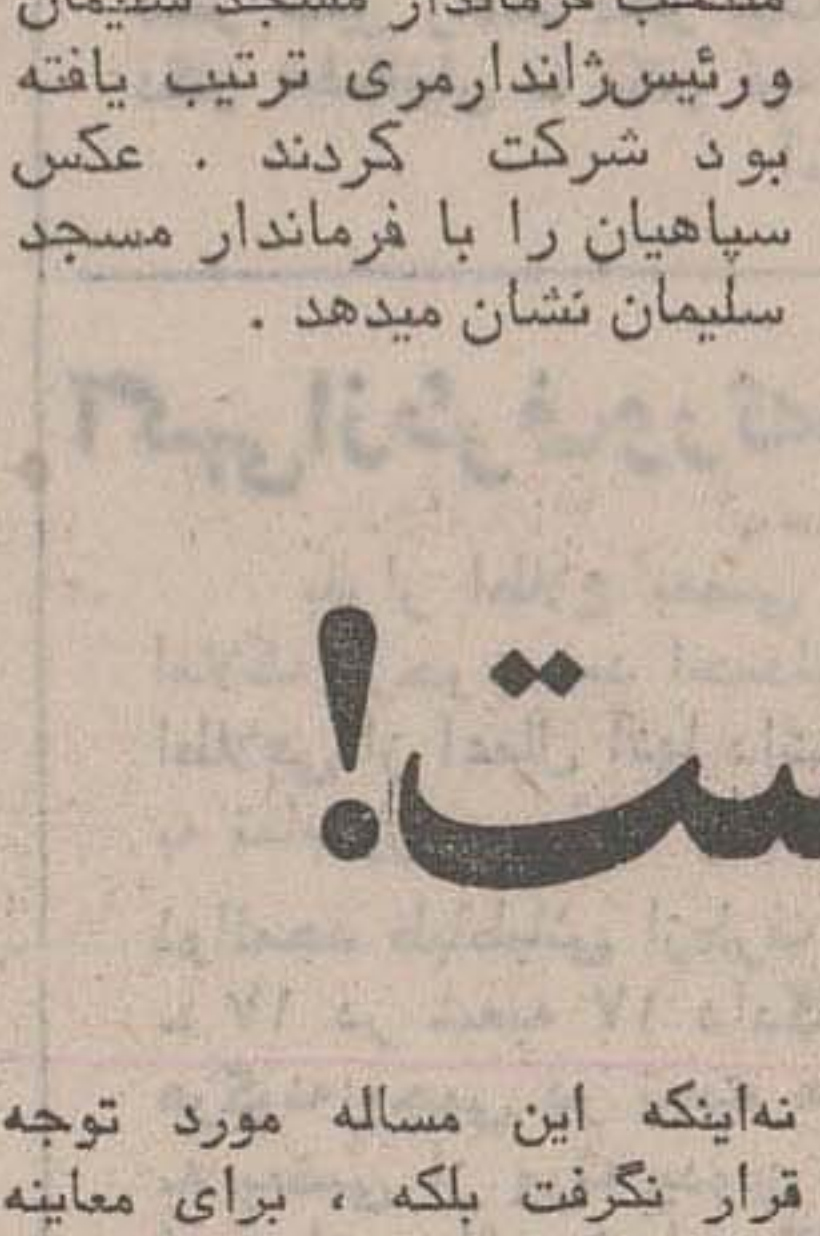 فرماندار مسجد سلیمان
و رئیس‌ژاندارمری ترتیب یافته
بود شرکت کردند . عکس
سپاهیان را با فرماندار مسجد
سلیمان نشان میدهد .
ست!
نه‌اینکه این مساله مورد توجه
قرار نگرفت بلکه ، برای معاینه